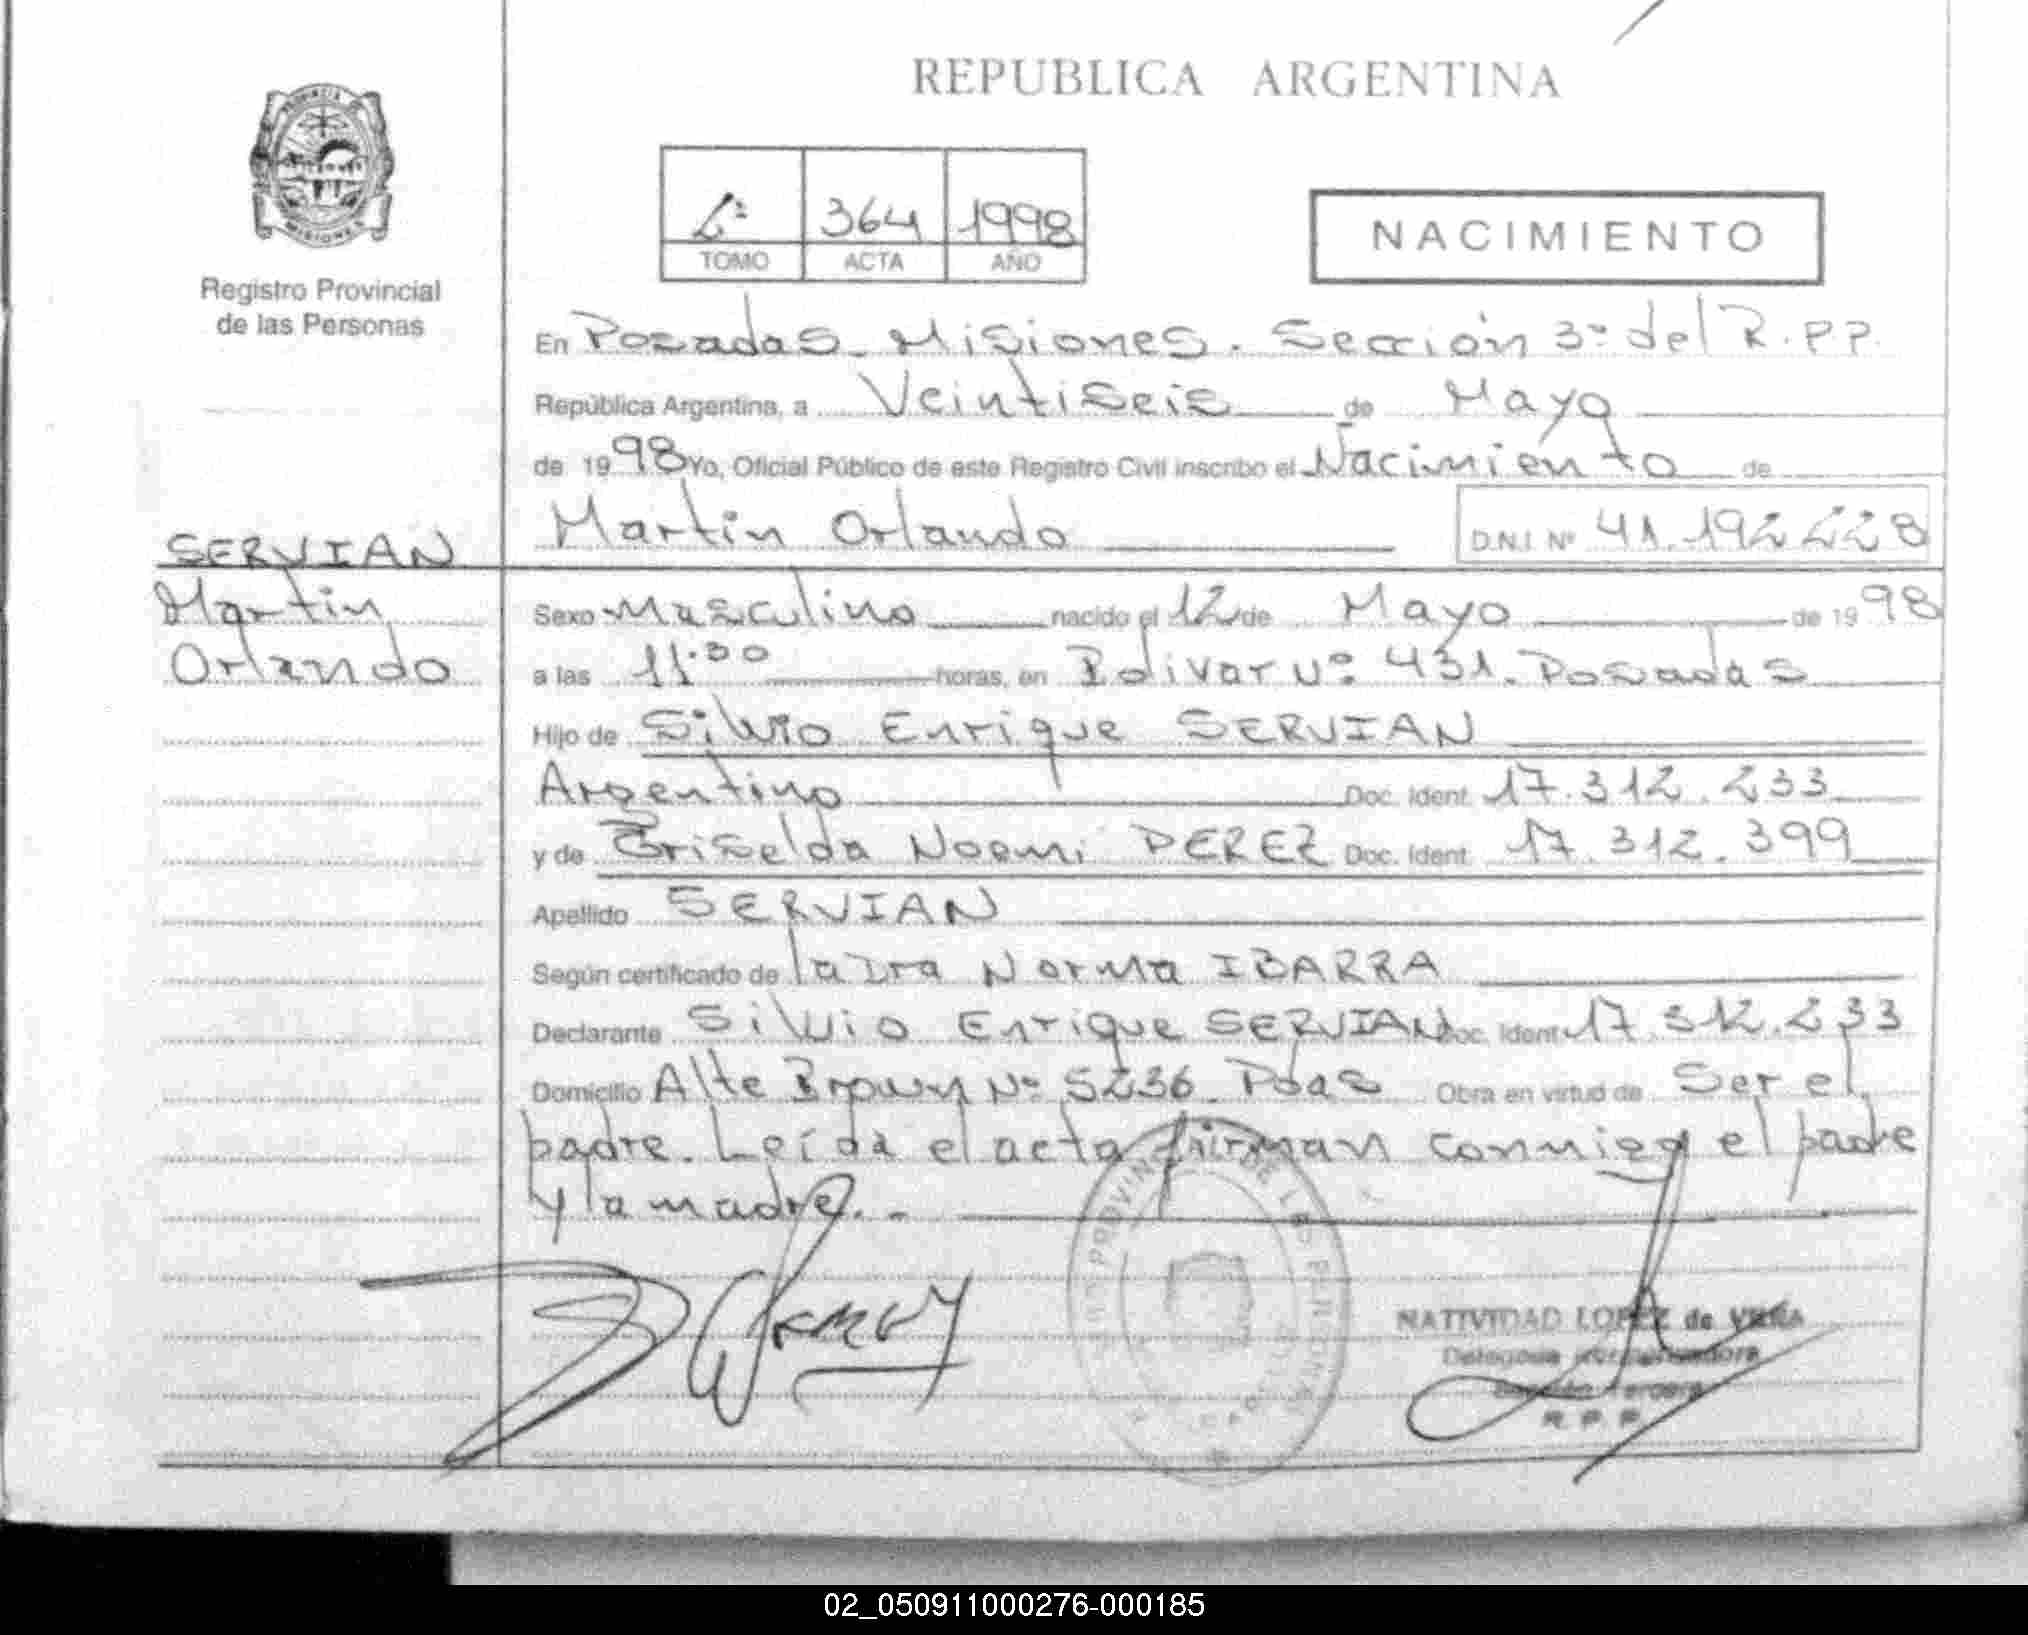 REPUBLICA ARGENTINA
PROVINCIA DE
MISIONES
Registro Provincial
de las Personas
2º 364 1998
TOMO ACTA AÑO
NACIMIENTO
En Posadas. Misiones. Sección 3º del R.P.P.
República Argentina, a Veintiseis de Mayo
de 1998 Yo, Oficial Público de este Registro Civil inscribo el Nacimiento de
Martin Orlando D.N.I. Nº 41.192.228
SERVIAN
Martin
Orlando
Sexo Masculino nacido el 12 de Mayo de 1998
a las 11:30 horas, en Bolivar Nº 431. Posadas
Hijo de Silvio Enrique SERVIAN
Argentino Doc. Ident. 17.312.233
y de Griselda Noemi PEREZ Doc. Ident. 17.312.399
Apellido SERVIAN
Según certificado de la Dra Norma IBARRA
Declarante Silvio Enrique SERVIAN Doc. Ident. 17.312.233
Domicilio Alte Brown Nº 5236. Pdas Obra en virtud de Ser el
padre. Leída el acta firman conmigo el padre
y la madre.-
NATIVIDAD LOPEZ de
Delegada
Sección Tercera
R.P.P.
02_050911000276-000185